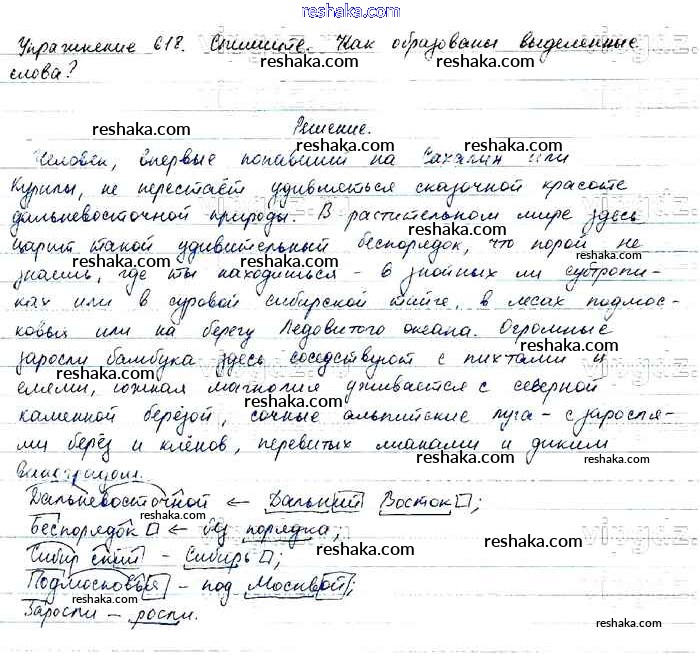 reshaka.com
Упражнение 618. Спишите. Как образованы выделенные
слова?
reshaka.com
Решение.
reshaka.com
Человек, впервые попавший на Сахалин или
Курилы, не перестаёт удивляться сказочной красоте
дальневосточной природы. В растительном мире здесь
царит такой удивительный беспорядок, что порой не
знаешь, где ты находишься - в знойных ли субтропи-
ках или в суровой сибирской тайге, в лесах подмос-
ковья или на берегу Ледовитого океана. Огромные
заросли бамбука здесь соседствуют с пихтами и
елями, южная магнолия уживается с северной
каменной берёзой, сочные альпийские луга - с заросля-
ми берёз и клёнов, перевитых лианами и диким
виноградом.
Дальневосточной ← Дальний Восток;
Беспорядок ← без порядка;
Сибирский - Сибирь;
Подмосковья - под Москвой;
Заросли - росли.
reshaka.com
reshaka.com
reshaka.com
reshaka.com
reshaka.com
reshaka.com
reshaka.com
reshaka.com
reshaka.com
reshaka.com
reshaka.com
reshaka.com
reshaka.com
reshaka.com